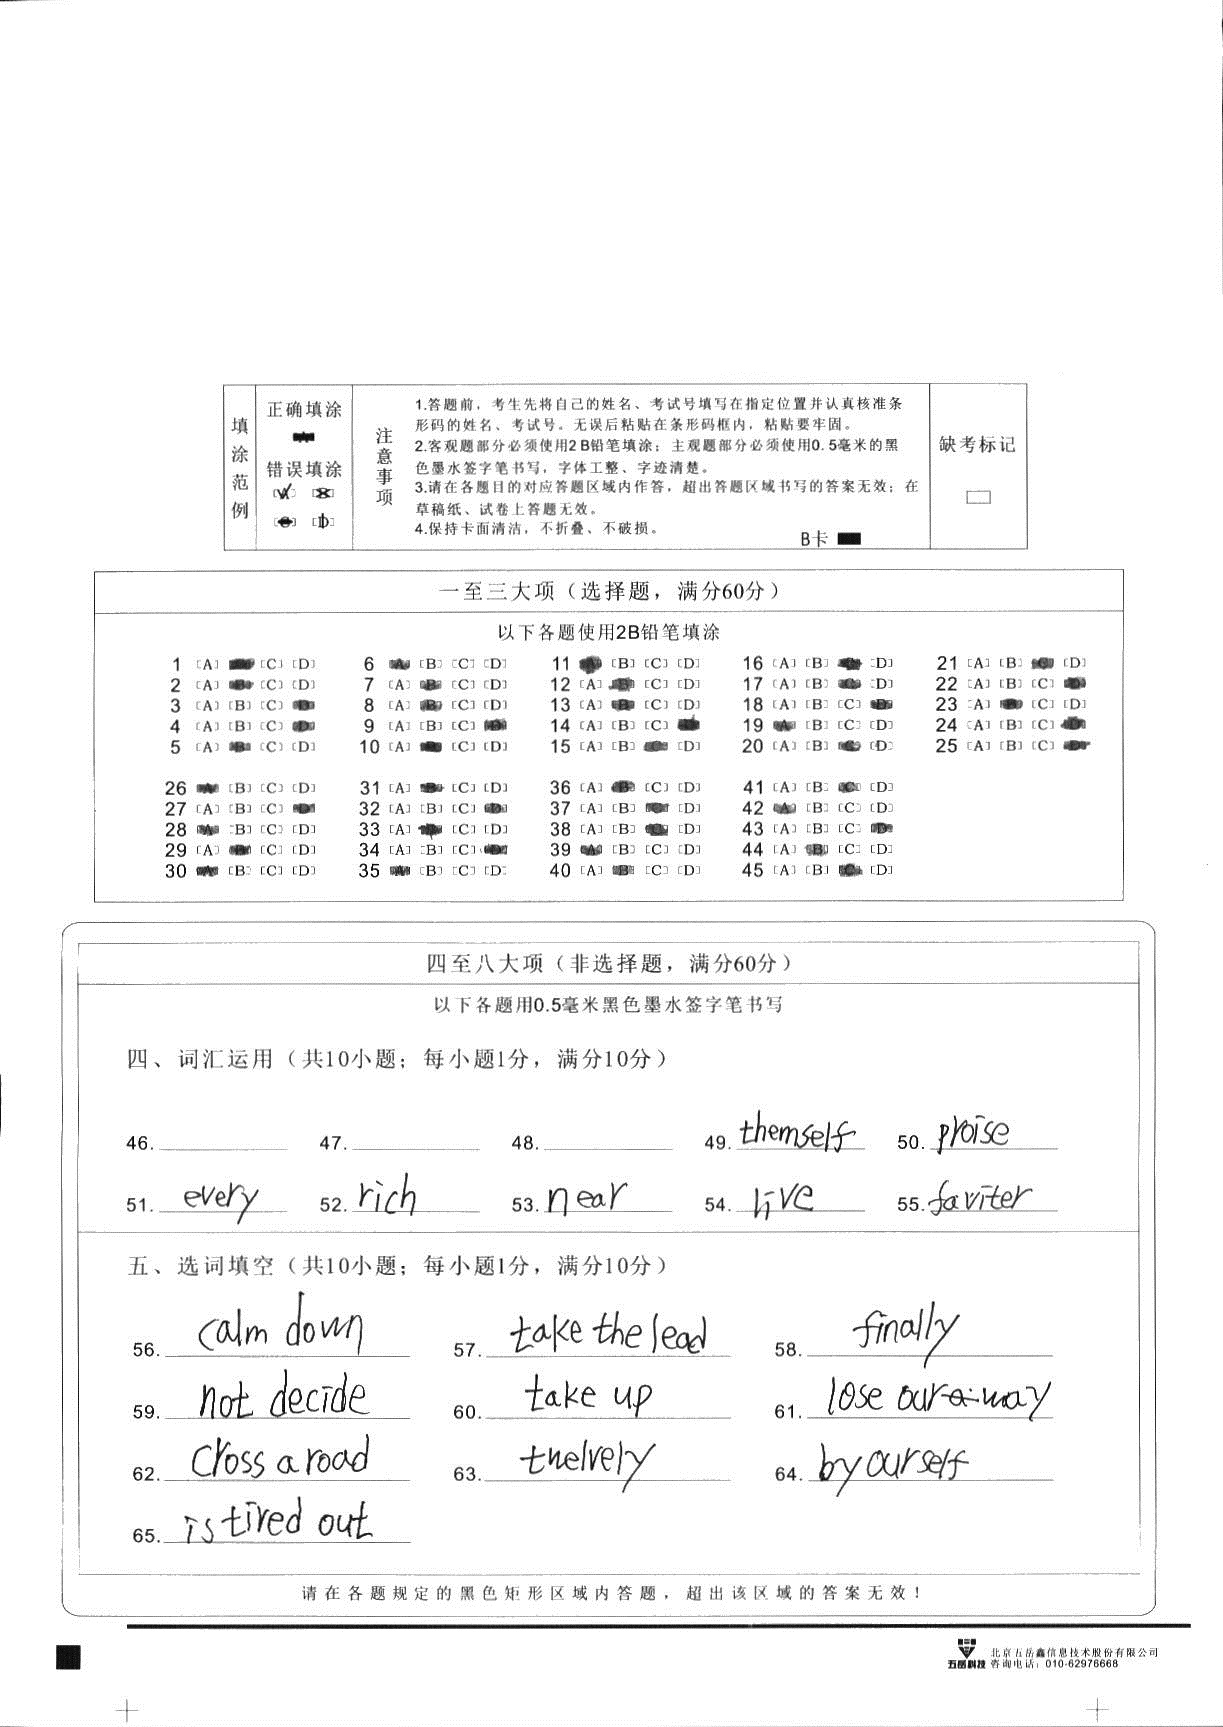 填涂范例
正确填涂
错误填涂
注意事项
1.答题前，考生先将自己的姓名、考试号填写在指定位置并认真核准条
形码的姓名、考试号。无误后粘贴在条形码框内，粘贴要牢固。
2.客观题部分必须使用2B铅笔填涂；主观题部分必须使用0.5毫米的黑
色墨水签字笔书写，字体工整、字迹清楚。
3.请在各题目的对应答题区域内作答，超出答题区域书写的答案无效；在
草稿纸、试卷上答题无效。
4.保持卡面清洁，不折叠、不破损。
B卡
缺考标记
一至三大项（选择题，满分60分）
以下各题使用2B铅笔填涂
1 [A] [C] [D] 6 [B] [C] [D] 11 [B] [C] [D] 16 [A] [B] [D] 21 [A] [B] [D]
2 [A] [C] [D] 7 [A] [C] [D] 12 [A] [C] [D] 17 [A] [B] [D] 22 [A] [B] [C]
3 [A] [B] [C] 8 [A] [C] [D] 13 [A] [C] [D] 18 [A] [B] [C] 23 [A] [C] [D]
4 [A] [B] [C] 9 [A] [B] [C] 14 [A] [B] [C] 19 [B] [C] [D] 24 [A] [B] [C]
5 [A] [C] [D] 10 [A] [C] [D] 15 [A] [B] [D] 20 [A] [B] [D] 25 [A] [B] [C]
26 [B] [C] [D] 31 [A] [C] [D] 36 [A] [C] [D] 41 [A] [B] [D]
27 [A] [B] [C] 32 [A] [B] [C] 37 [A] [B] [D] 42 [B] [C] [D]
28 [B] [C] [D] 33 [A] [C] [D] 38 [A] [B] [D] 43 [A] [B] [C]
29 [A] [C] [D] 34 [A] [B] [C] 39 [B] [C] [D] 44 [A] [C] [D]
30 [B] [C] [D] 35 [B] [C] [D] 40 [A] [C] [D] 45 [A] [B] [D]
四至八大项（非选择题，满分60分）
以下各题用0.5毫米黑色墨水签字笔书写
四、词汇运用（共10小题；每小题1分，满分10分）
46. 47. 48. 49. themself 50. proise
51. every 52. rich 53. near 54. live 55. faviter
五、选词填空（共10小题；每小题1分，满分10分）
56. calm down 57. take the lead 58. finally
59. not decide 60. take up 61. lose our way
62. cross a road 63. 64. by ourself
65. is tired out
请在各题规定的黑色矩形区域内答题，超出该区域的答案无效！
五岳科技 北京五岳鑫信息技术股份有限公司
咨询电话：010-62976668